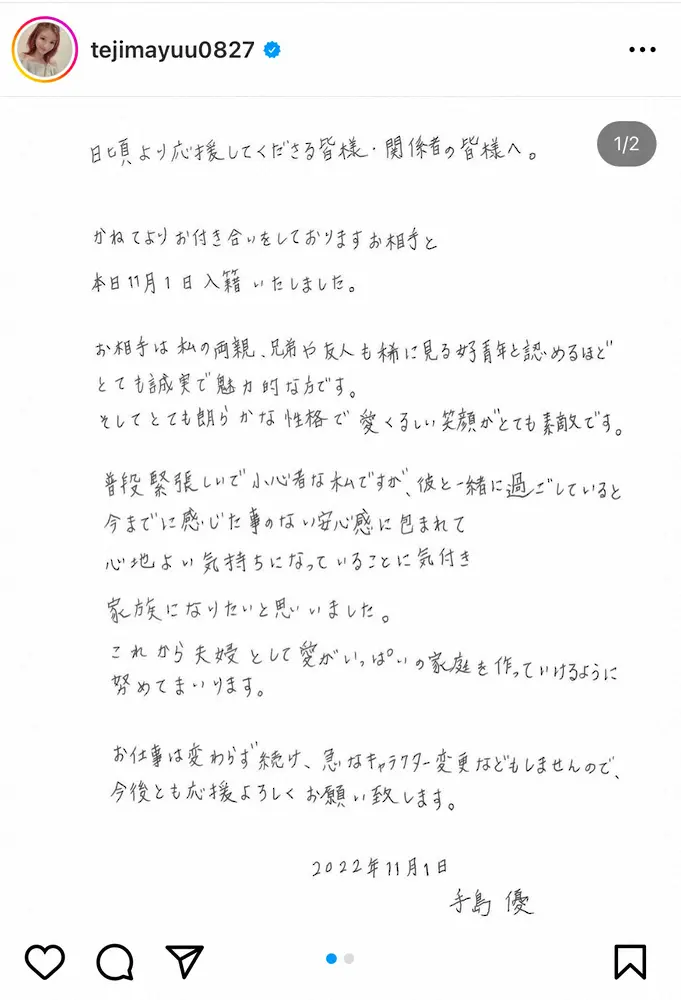 tejimayuu0827
1/2
日頃より応援してくださる皆様・関係者の皆様へ。
かねてよりお付き合いをしておりますお相手と
本日11月1日入籍いたしました。
お相手は私の両親、兄弟や友人も稀に見る好青年と認めるほど
とても誠実で魅力的な方です。
そしてとても朗らかな性格で愛くるしい笑顔がとても素敵です。
普段緊張しいで小心者な私ですが、彼と一緒に過ごしていると
今までに感じた事のない安心感に包まれて
心地よい気持ちになっていることに気付き
家族になりたいと思いました。
これから夫婦として愛がいっぱいの家庭を作っていけるように
努めてまいります。
お仕事は変わらず続け、急なキャラクター変更などもしませんので、
今後とも応援よろしくお願い致します。
2022年11月1日
手島優